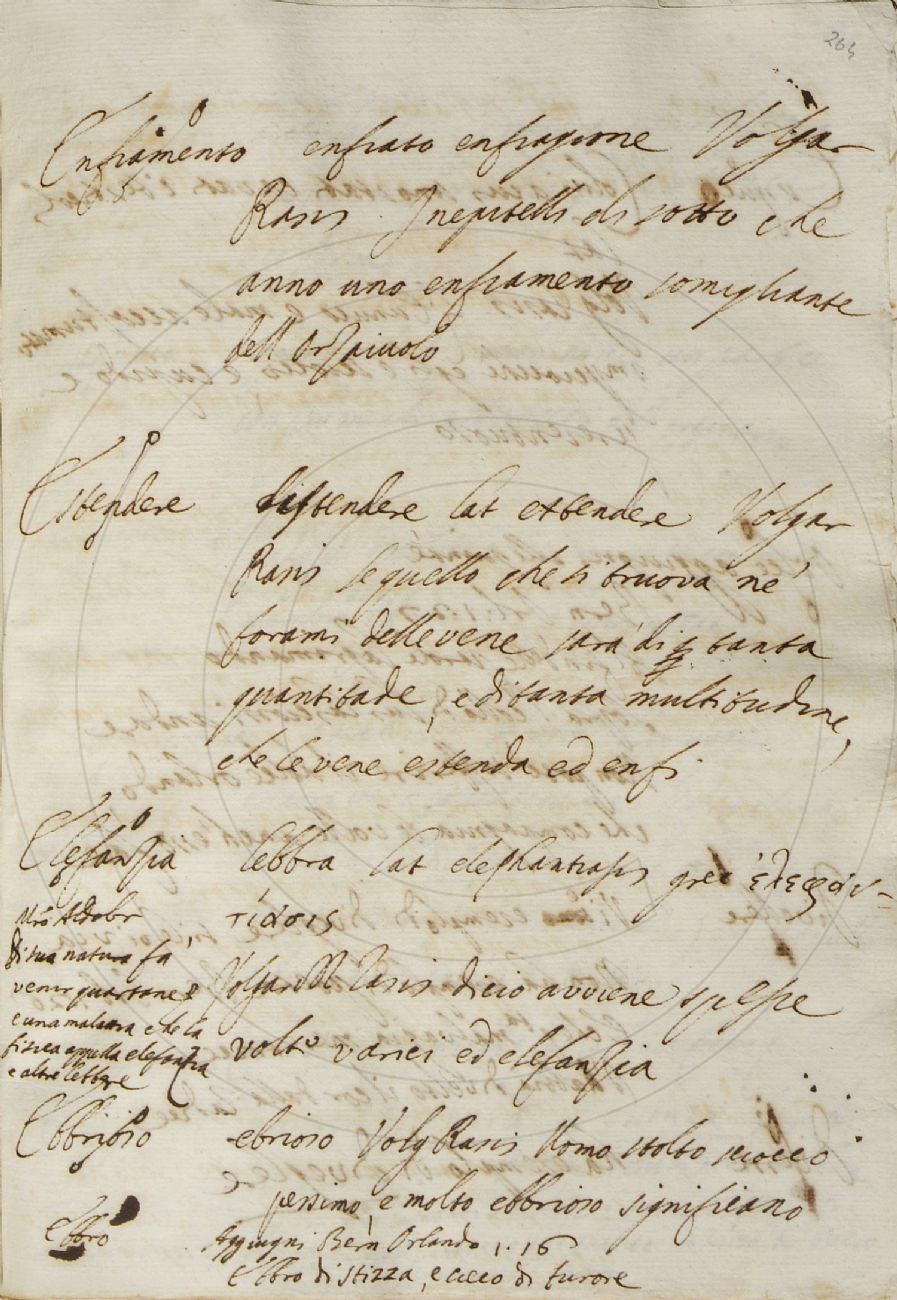 264
Enfiamento enfiato enfiagione Volgar
Rasis. Inepitelli di sotto che
anno uno enfiamento somigliante
dell'Orzaiuolo
Estendere distendere lat extendere Volgar
Rasis se quello che si truova né
forami delle vene sarà di tanta
quantitade, e di tanta multitudine,
che le vene estenda ed enfi
Elefanzia lebbra lat elephantiasis grec ἐλεφαν-
τίασις
Volgar Rasis dicio avviene spesse
volte varici ed elefanzia
Mro Aldobr
di sua natura fà
venir quartane
e una malattia che la
fisica appella elefanzia
e altre lebbre
Ebbrioso ebrioso Volg Rasis Uomo stolto sciocco
pessimo e molto ebbrioso significano
ebbro Aggiugni Bern Orlando 1. 16
Ebbro di stizza, e cieco di furore